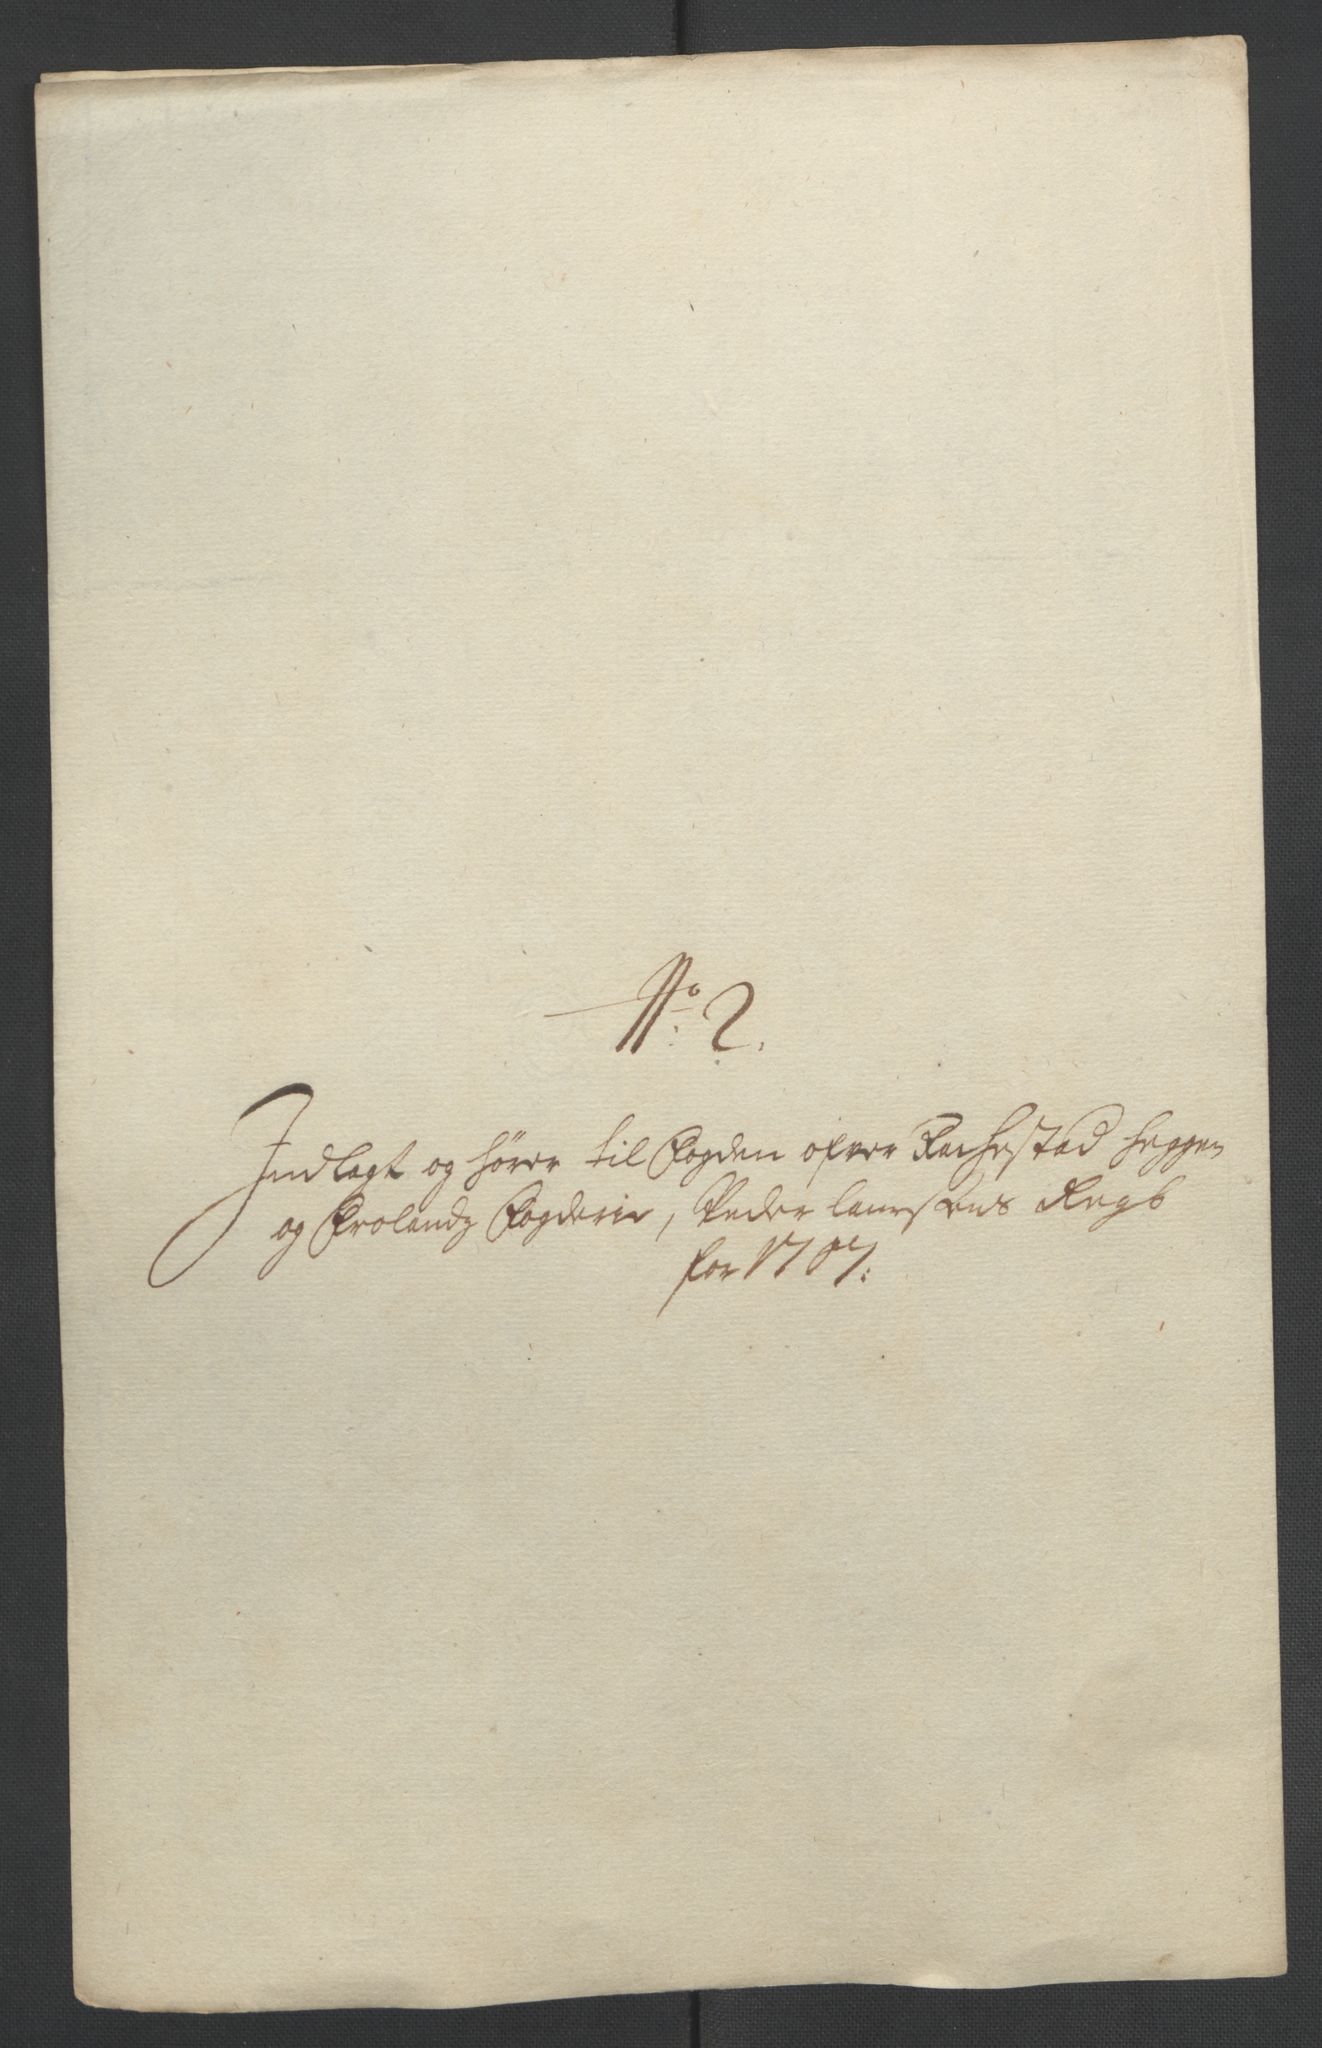 No: 2.
Indlagt og hörer til Fogden ofver Rachestad heggen
og Frolands Fogderie, Peder laursens Regb
for 1707: